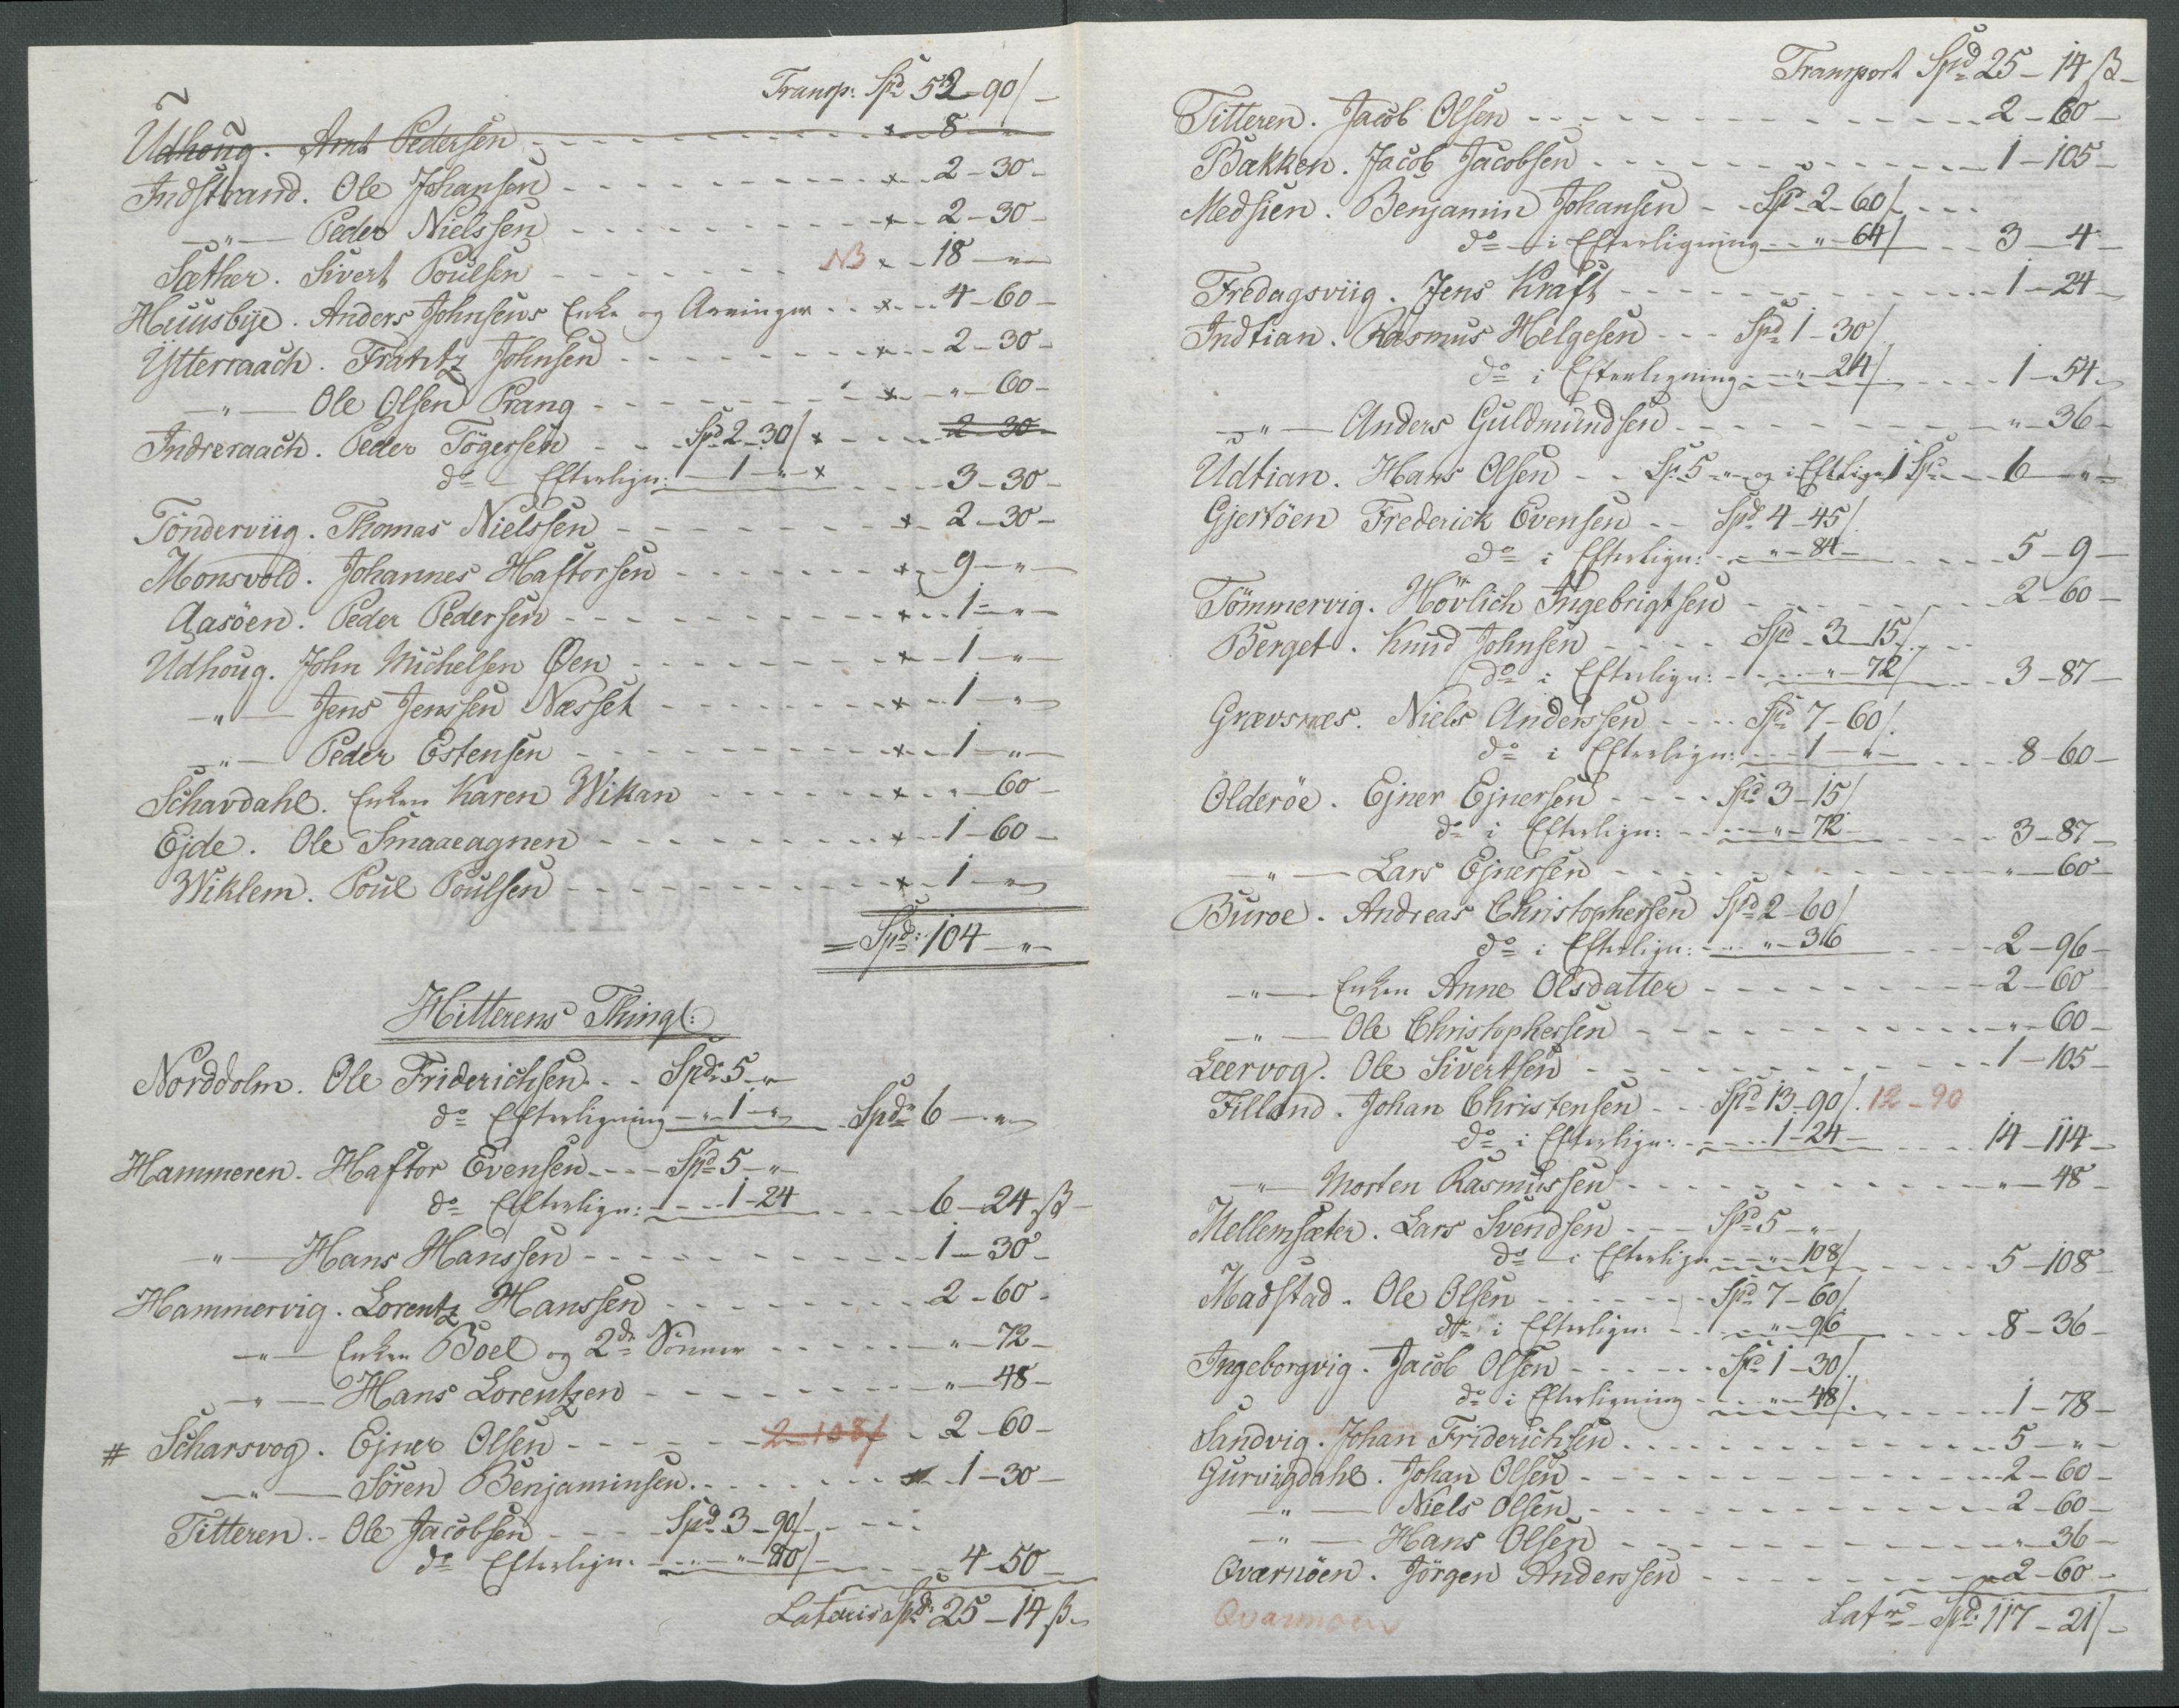 Transp: Spd 52-90/-
Udhoug. Arnt Pedersen - - - x - 8 - -
Indstrand. Ole Johansen - - - x - 2-30-
-"- Peder Nielssen - - - x - 2-30-
Sæther. Sivert Poulsen - - - NB x - 18 - " -
Huusbye. Anders Johnsens Enke og Arvinger - - x - 4-60-
Ytterraach. Frantz Johnsen - - - x - 2-30-
-"- Ole Olsen Prang - - - x - " - 60-
Indreraach. Peder Tögersen - - Spd 2-30/ x - - 2-30-
do - Efterlign: - 1 - " x - - 3-30-
Tönderviig. Thomas Nielssen - - - x - 2-30-
Monsvold. Johannes Haftorsen - - - x - 9 - " -
Aasöen. Peder Pedersen - - - x - 1 - " -
Udhoug. John Michelsen Öen - - - x - 1 - " -
-"- Jens Jenssen Næsset - - - x - 1 - " -
-"- Peder Estensen - - - x - 1 - " -
Schavdahl. Enken Karen Wikan - - - x - " - 60-
Ejde. Ole Smaaeagnen - - - x - 1-60-
Wiklem. Poul Poulsen - - - x - 1 - " -
= Spd: 104 - " -
Hitterens Thingl:
Norddolm. Ole Friderichsen - - Spd 5 - "
do Efterligning - " 1 - " - Spd 6 - " -
Hammeren. Haftor Evensen - - - Spd 5 - " -
do Efterlign: - - 1-24 - - 6-24 ß -
-"- Hans Hanssen - - - 1-30-
Hammervig. Lorentz Hanssen - - - 2-60-
-"- Enken Boel og 2de Sönner - - - " - 72-
-"- Hans Lorentzen - - - " - 48-
# Scharsvog. Ejner Olsen - - - 2-108/ - 2-60-
-"- Sören Benjaminsen - - - 1-30-
Titteren. - Ole Jacobsen - - - Spd 3-90/- - -
do Efterlign. - - " - 80/- - - 4-50-
Lateris Spd 25-14 ß -
Transport Spd 25-14 ß -
Titteren. Jacob Olsen - - - 2-60-
Bakken. Jacob Jacobsen - - - 1-105-
Medsien. Benjamin Johansen - - Sp 2-60/- - -
do - i Efterligning - " - 64/ - - 3-4-
Fredagsviig. Jens Kraft - - - 1-24-
Indtian. Rasmus Helgesen - - - Spd 1-30/
do i Efterligning - " - 24/ - - 1-54-
-"- Anders Guldmundsen - - - " - 36-
Udtian. Hans Olsen - - Sp. 5 - " og i Eftlign 1 Sp. - - 6 - " -
Gjertöen Frederick Evensen - - Spd 4-45/
do i Efterlign: - " - 84- - - 5-9-
Tömmervig. Hövlich Ingebrigtsen - - - 2-60-
Berget. Knud Johnsen - - - Spd 3-15/- -
do i Efterlign: - " - 72/ - - 3-87-
Grævsnæs. Niels Anderssen - - - Spd 7-60/.
do i Efterlign: - - 1 - " - - - 8-60-
Olderöe. Ejner Ejnersen - - - Spd 3-15/
do i Efterlign: - - " - 72- - - 3-87-
-"- Lars Ejnersen - - - " - 60-
Buroe. Andreas Christophersen Spd 2-60/
do i Efterlign: - - " - 36 - - 2-96-
-"- Enken Anne Olsdatter - - - 2-60-
-"- Ole Christophersen - - - " - 60-
Leervog. Ole Sivertsen - - - 1-105-
Filland. Johan Christensen - - - Spd 13-90/. 12-90
do i Efterlign: - - 1-24- - - 14-114-
-"- Morten Rasmussen - - - " - 48-
Mellemsæter. Lars Svendsen - - - Spd 5 - " -
do - i Efterlign - " - 108/ - - 5-108-
Madstad. Ole Olsen - - - Spd 7-60/
do i Efterlign: - - " - 96 - - 8-36-
Ingeborgvig. Jacob Olsen - - - Spd 1-30/.
do i Efterligning - - " - 48/. - - 1-78-
Sandvig. Johan Friderichsen - - - 5 - " -
Gurvigdahl. Johan Olsen - - - 2-60-
-"- Niels Olsen - - - 2-60-
-"- Hans Olsen - - - " - 36-
Qværnöen. Jörgen Anderssen - - - 2-60-
Qvarnöen
Latrs Spd: 117-21/-